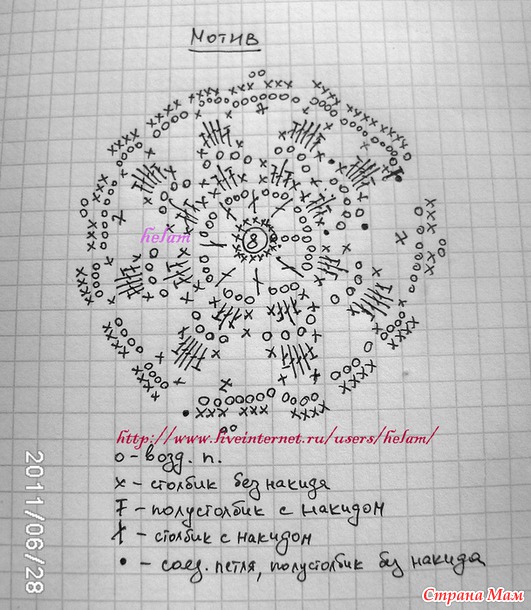 Мотив
8
helam
http://www.liveinternet.ru/users/helam/
o - возд. п.
x - столбик без накида
- полустолбик с накидом
- столбик с накидом
• - соед. петля, полустолбик без накида
2011/06/28
Страна Мам